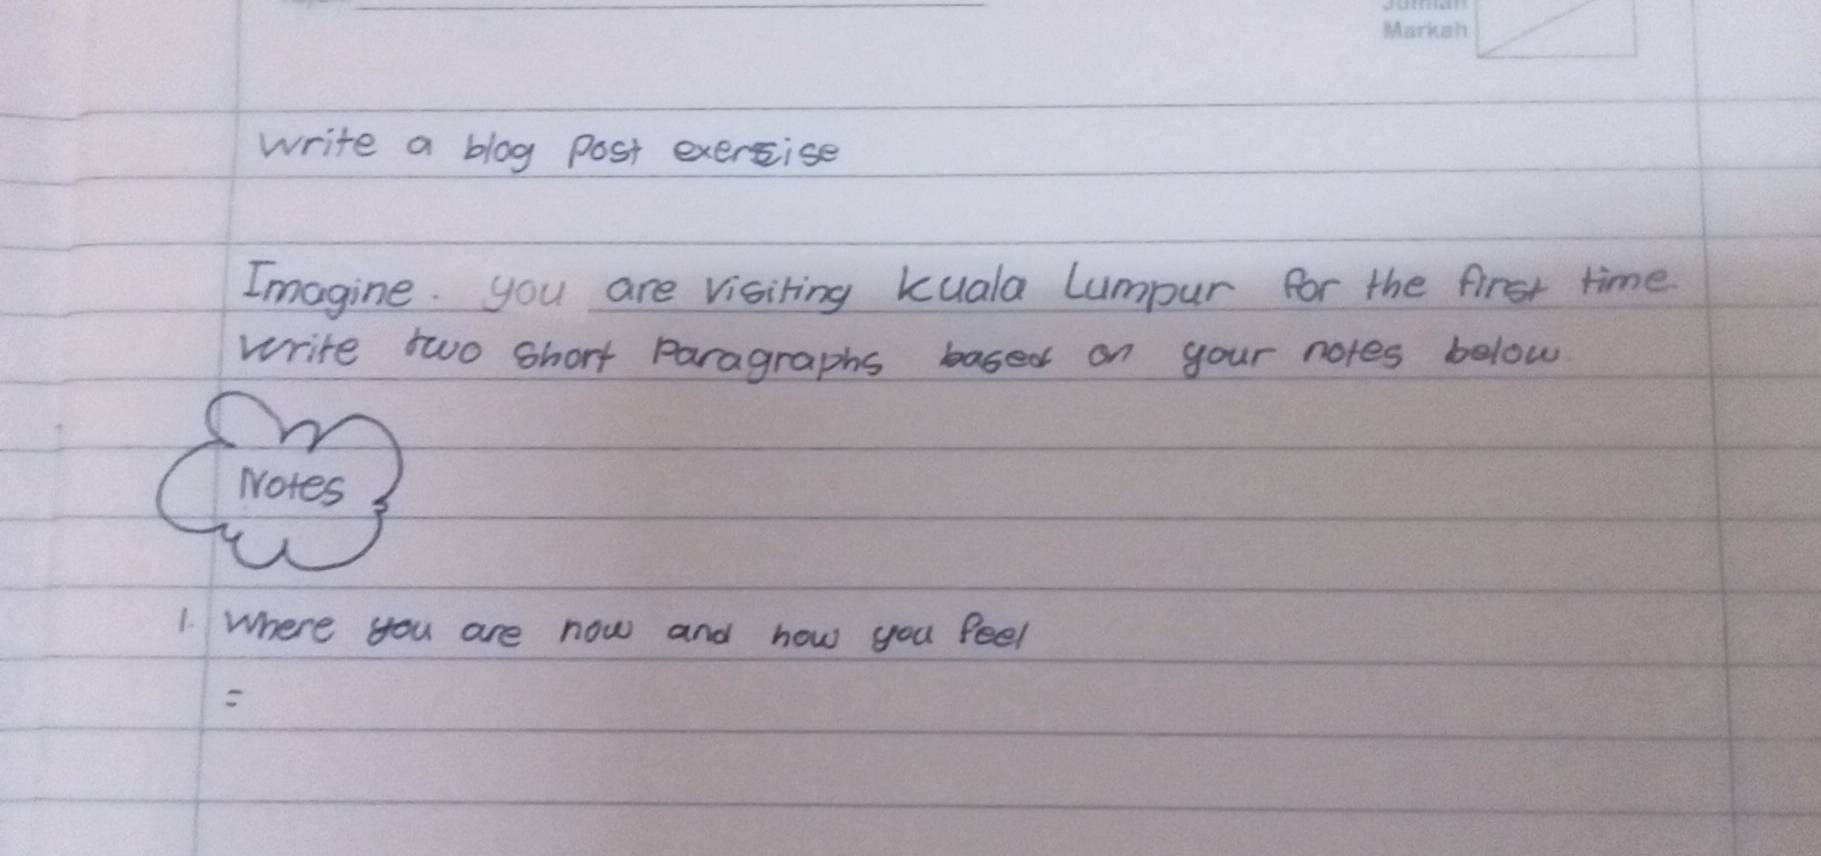 Markah
write a blog post exersise
Imagine. you are visiting kuala lumpur for the first time.
write two short paragraphs based on your notes below.
Notes
1. Where you are now and how you feel
=